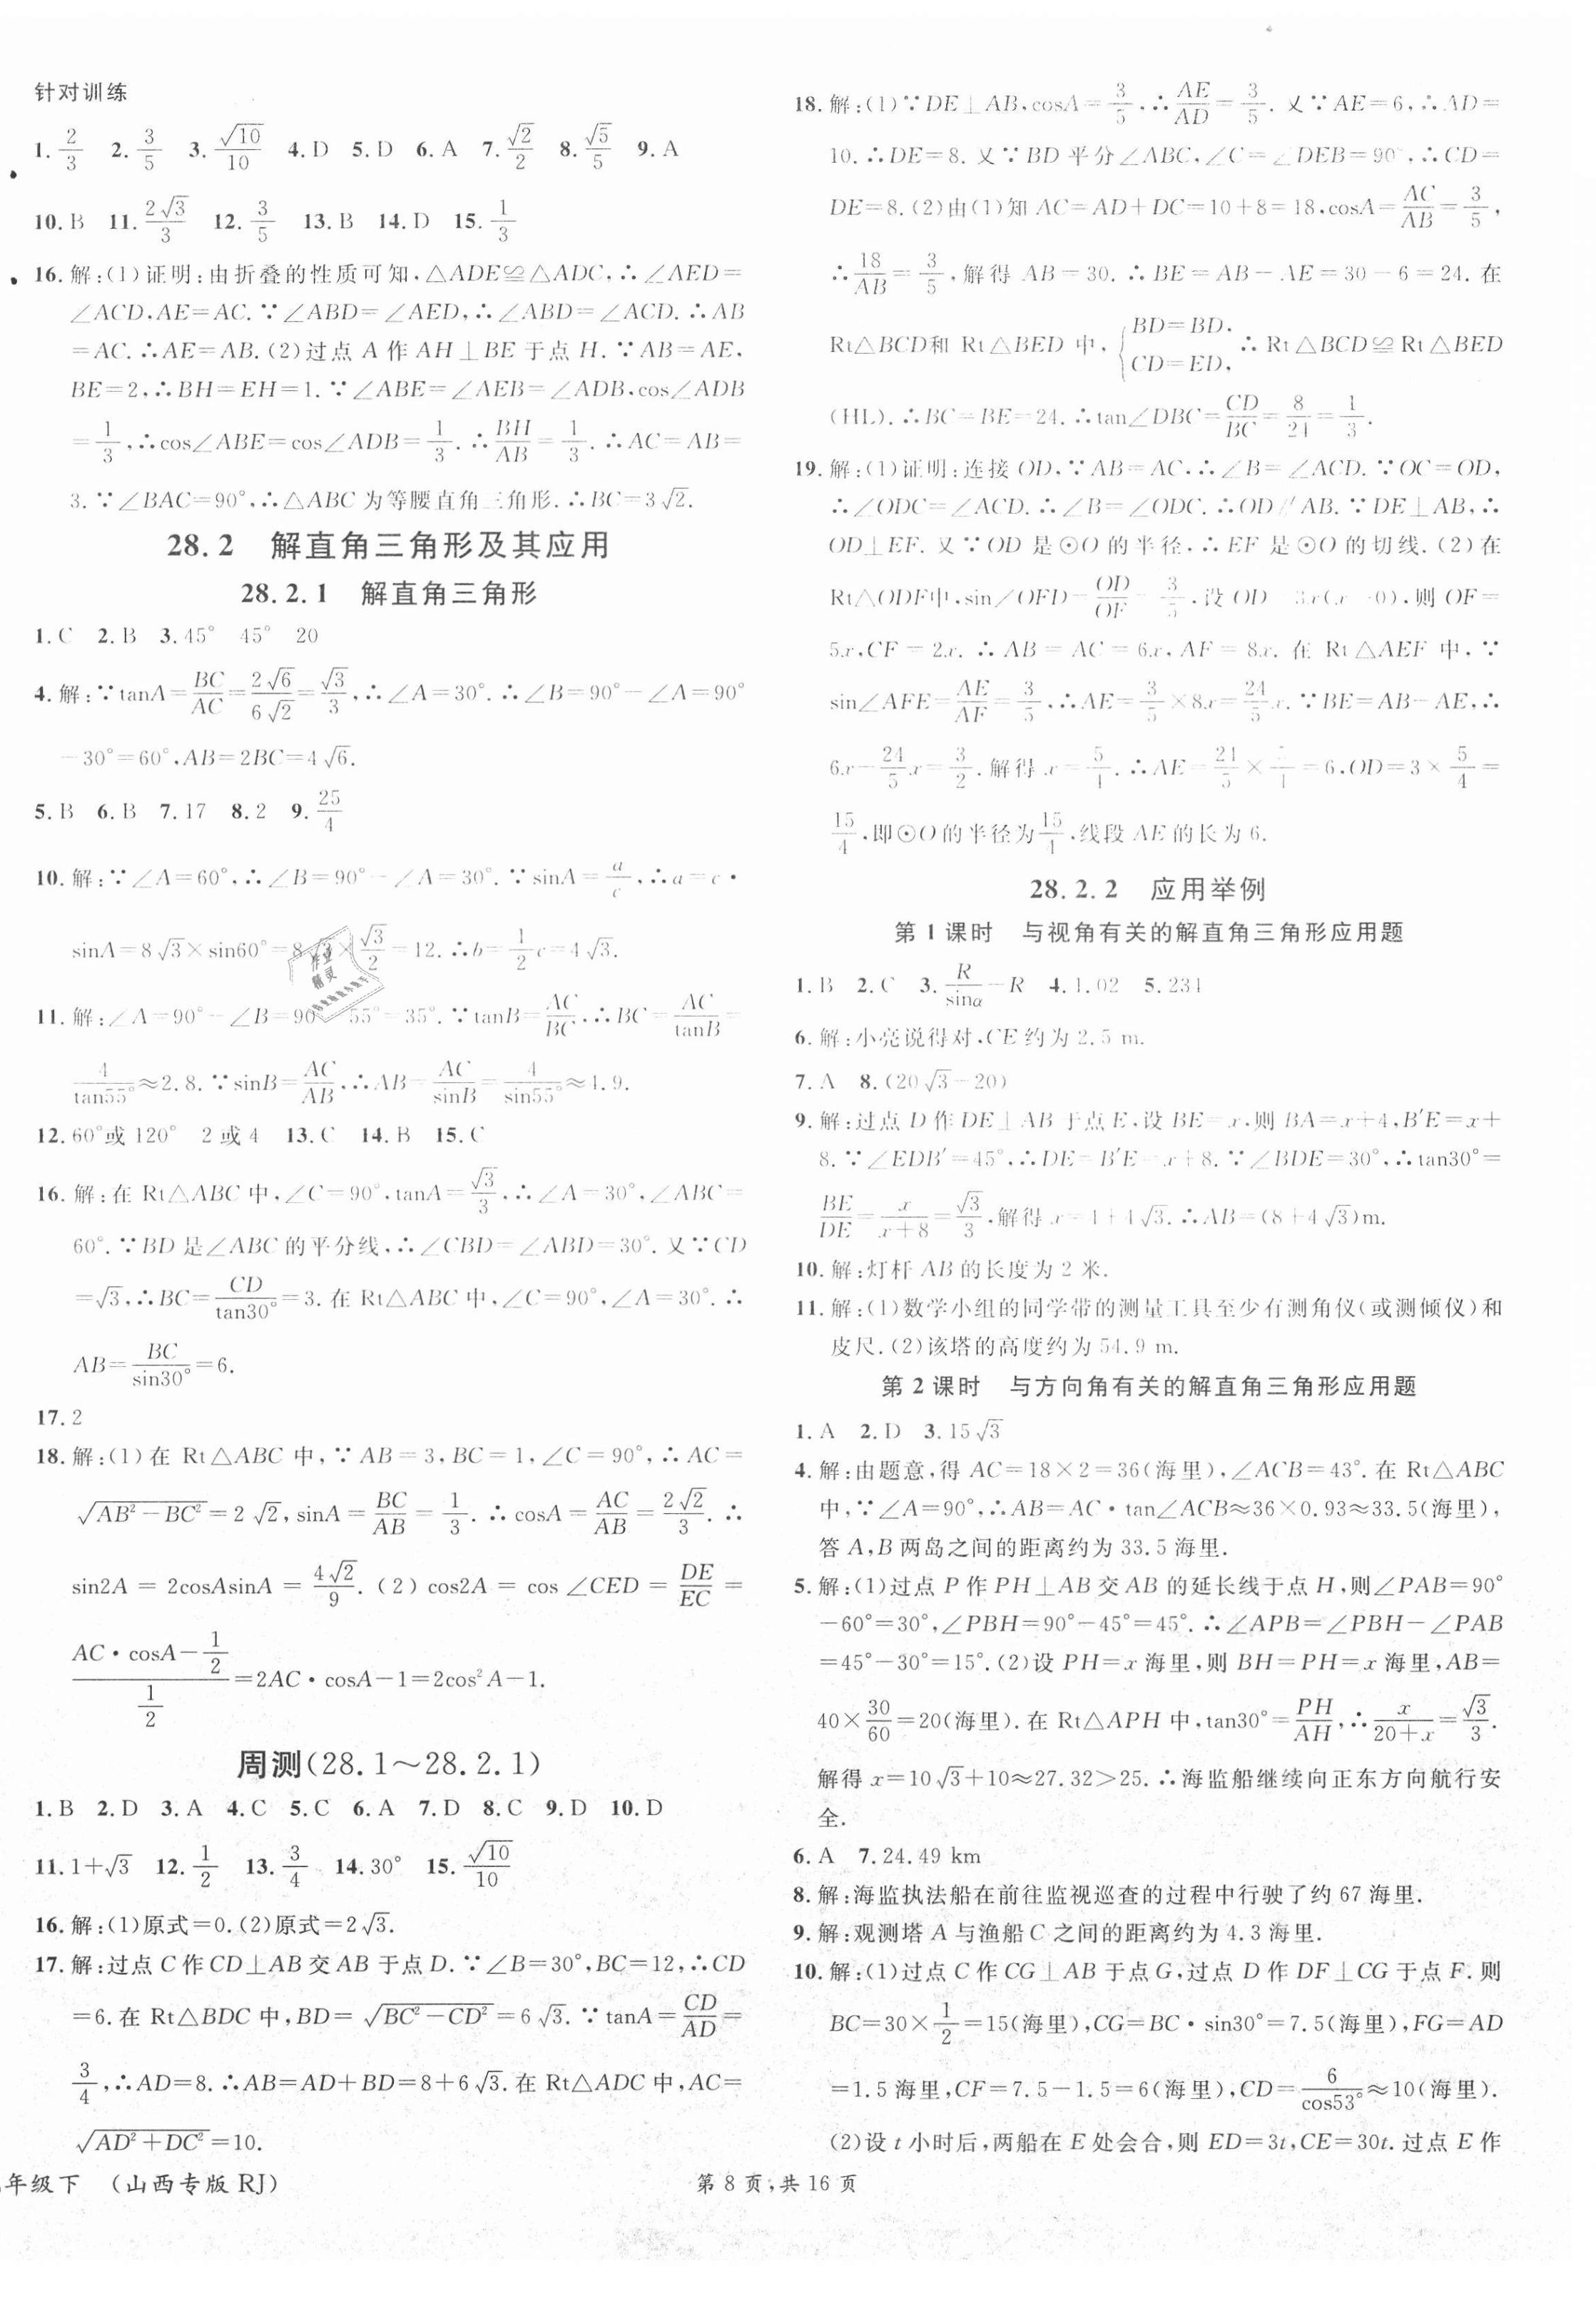 针对训练
1. 2/3 2. 3/5 3. √10/10 4. D 5. D 6. A 7. √2/2 8. √5/5 9. A
10. B 11. 2√3/3 12. 3/5 13. B 14. D 15. 1/3
16. 解:(1)证明:由折叠的性质可知,△ADE≌△ADC,∴∠AED=
∠ACD,AE=AC. ∵∠ABD=∠AED,∴∠ABD=∠ACD. ∴AB
=AC. ∴AE=AB. (2)过点 A 作 AH⊥BE 于点 H. ∵AB=AE,
BE=2,∴BH=EH=1. ∵∠ABE=∠AEB=∠ADB,cos∠ADB
=1/3,∴cos∠ABE=cos∠ADB=1/3. ∴BH/AB=1/3. ∴AC=AB=
3. ∵∠BAC=90°,∴△ABC 为等腰直角三角形. ∴BC=3√2.
28.2 解直角三角形及其应用
28.2.1 解直角三角形
1. C 2. B 3. 45° 45° 20
4. 解:∵tanA=BC/AC=2√6/6√2=√3/3,∴∠A=30°. ∴∠B=90°-∠A=90°
-30°=60°,AB=2BC=4√6.
5. B 6. B 7. 17 8. 2 9. 25/4
10. 解:∵∠A=60°,∴∠B=90°-∠A=30°. ∵sinA=a/c,∴a=c·
sinA=8√3×sin60°=8√3×√3/2=12. ∴b=1/2c=4√3.
11. 解:∠A=90°-∠B=90°-55°=35°. ∵tanB=AC/BC,∴BC=AC/tanB=
4/tan55°≈2.8. ∵sinB=AC/AB,∴AB=AC/sinB=4/sin55°≈4.9.
12. 60°或120° 2或4 13. C 14. B 15. C
16. 解:在 Rt△ABC 中,∠C=90°,tanA=√3/3,∴∠A=30°,∠ABC=
60°. ∵BD 是∠ABC 的平分线,∴∠CBD=∠ABD=30°. 又∵CD
=√3,∴BC=CD/tan30°=3. 在 Rt△ABC 中,∠C=90°,∠A=30°. ∴
AB=BC/sin30°=6.
17. 2
18. 解:(1)在 Rt△ABC 中,∵AB=3,BC=1,∠C=90°,∴AC=
√(AB²-BC²)=2√2,sinA=BC/AB=1/3. ∴cosA=AC/AB=2√2/3. ∴
sin2A=2cosAsinA=4√2/9. (2)cos2A=cos∠CED=DE/EC=
(AC·cosA-1/2)/(1/2)=2AC·cosA-1=2cos²A-1.
周测(28.1～28.2.1)
1. B 2. D 3. A 4. C 5. C 6. A 7. D 8. C 9. D 10. D
11. 1+√3 12. 1/2 13. 3/4 14. 30° 15. √10/10
16. 解:(1)原式=0. (2)原式=2√3.
17. 解:过点 C 作 CD⊥AB 交 AB 于点 D. ∵∠B=30°,BC=12,∴CD
=6. 在 Rt△BDC 中,BD=√(BC²-CD²)=6√3. ∵tanA=CD/AD=
3/4,∴AD=8. ∴AB=AD+BD=8+6√3. 在 Rt△ADC 中,AC=
√(AD²+DC²)=10.
18. 解:(1)∵DE⊥AB,cosA=3/5,∴AE/AD=3/5. 又∵AE=6,∴AD=
10. ∴DE=8. 又∵BD 平分∠ABC,∠C=∠DEB=90°,∴CD=
DE=8. (2)由(1)知 AC=AD+DC=10+8=18,cosA=AC/AB=3/5,
∴18/AB=3/5,解得 AB=30. ∴BE=AB-AE=30-6=24. 在
Rt△BCD和 Rt△BED 中,{BD=BD, CD=ED, ∴Rt△BCD≌Rt△BED
(HL). ∴BC=BE=24. ∴tan∠DBC=CD/BC=8/24=1/3.
19. 解:(1)证明:连接 OD,∵AB=AC,∴∠B=∠ACD. ∵OC=OD,
∴∠ODC=∠ACD. ∴∠B=∠ODC. ∴OD∥AB. ∵DE⊥AB,∴
OD⊥EF. 又∵OD 是⊙O 的半径,∴EF 是⊙O 的切线. (2)在
Rt△ODF中,sin∠OFD=OD/OF=3/5,设 OD=3x(x>0),则 OF=
5x,CF=2x. ∴AB=AC=6x,AF=8x. 在 Rt△AEF 中,∵
sin∠AFE=AE/AF=3/5,∴AE=3/5×8x=24/5x. ∵BE=AB-AE,∴
6x-24/5x=3/2. 解得 x=5/4. ∴AE=24/5×5/4=6,OD=3×5/4=
15/4,即⊙O的半径为15/4,线段 AE 的长为 6.
28.2.2 应用举例
第1课时 与视角有关的解直角三角形应用题
1. B 2. C 3. R/sinα-R 4. 1.02 5. 234
6. 解:小亮说得对,CE 约为 2.5 m.
7. A 8. (20√3-20)
9. 解:过点 D 作 DE⊥AB 于点 E,设 BE=x,则 BA=x+4,B′E=x+
8. ∵∠EDB′=45°,∴DE=B′E=x+8. ∵∠BDE=30°,∴tan30°=
BE/DE=x/x+8=√3/3,解得 x=4+4√3. ∴AB=(8+4√3)m.
10. 解:灯杆 AB 的长度为 2 米.
11. 解:(1)数学小组的同学带的测量工具至少有测角仪(或测倾仪)和
皮尺. (2)该塔的高度约为 54.9 m.
第2课时 与方向角有关的解直角三角形应用题
1. A 2. D 3. 15√3
4. 解:由题意,得 AC=18×2=36(海里),∠ACB=43°. 在 Rt△ABC
中,∵∠A=90°,∴AB=AC·tan∠ACB≈36×0.93≈33.5(海里),
答 A,B 两岛之间的距离约为 33.5 海里.
5. 解:(1)过点 P 作 PH⊥AB 交 AB 的延长线于点 H,则∠PAB=90°
-60°=30°,∠PBH=90°-45°=45°. ∴∠APB=∠PBH-∠PAB
=45°-30°=15°. (2)设 PH=x 海里,则 BH=PH=x 海里,AB=
40×30/60=20(海里). 在 Rt△APH 中,tan30°=PH/AH,∴x/20+x=√3/3.
解得 x=10√3+10≈27.32>25. ∴海监船继续向正东方向航行安
全.
6. A 7. 24.49 km
8. 解:海监执法船在前往监视巡查的过程中行驶了约 67 海里.
9. 解:观测塔 A 与渔船 C 之间的距离约为 4.3 海里.
10. 解:(1)过点 C 作 CG⊥AB 于点 G,过点 D 作 DF⊥CG 于点 F. 则
BC=30×1/2=15(海里),CG=BC·sin30°=7.5(海里),FG=AD
=1.5 海里,CF=7.5-1.5=6(海里),CD=6/cos53°≈10(海里).
(2)设 t 小时后,两船在 E 处会合,则 ED=3t,CE=30t. 过点 E 作
年级下 (山西专版 RJ)
第 8 页,共 16 页